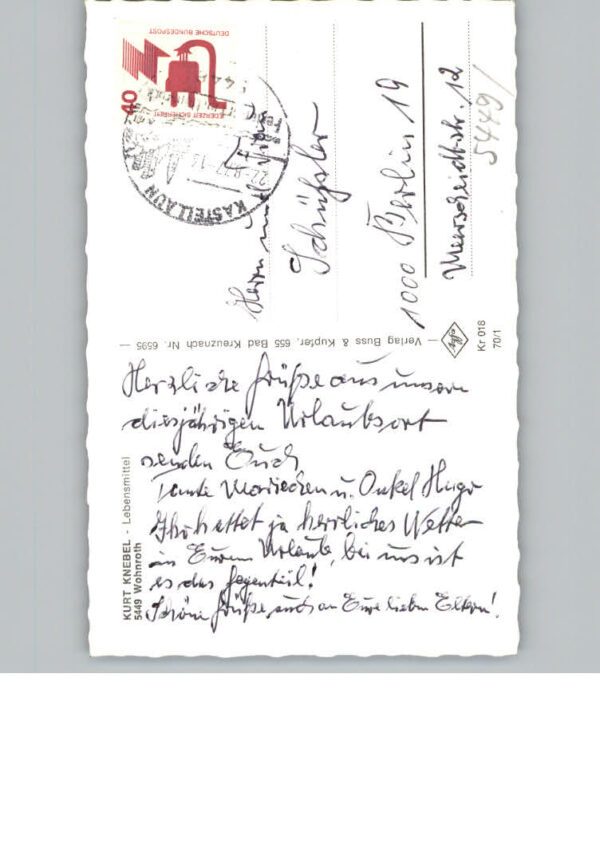 Herzliche Grüße aus unserm
diesjährigen Urlaubsort
senden Euch
Tante Mariechen u. Onkel Hugo
Ihr hattet ja herrliches Wetter
in Eurem Urlaub, bei uns ist
es das Gegenteil!
Schöne Grüße auch an Eure lieben Eltern!
KURT KNEBEL - Lebensmittel
5449 Wohnroth
— Verlag Buss & Kupfer, 655 Bad Kreuznach Nr. 6595 —
Kr 018
70/1
Herrn und Frau
Schüssler
1000 Berlin 19
Meerscheidtstr. 12
5449/
DEUTSCHE BUNDESPOST
JEDERZEIT SICHERHEIT
40
KASTELLAUN